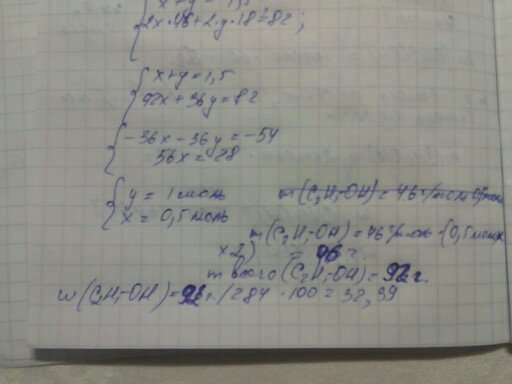 x+y=1,5
2x·46+2y·18=82;
x+y=1,5
92x+36y=82
-36x-36y=-54
56x=28
y=1моль
x=0,5моль
m(C₂H₅-OH)=46г/моль
m(C₂H₅-OH)=46г/моль·(0,5моль×
×2)
m всего(C₂H₅-OH)=92г.
w(C₂H₅-OH)= г./284·100=32,39